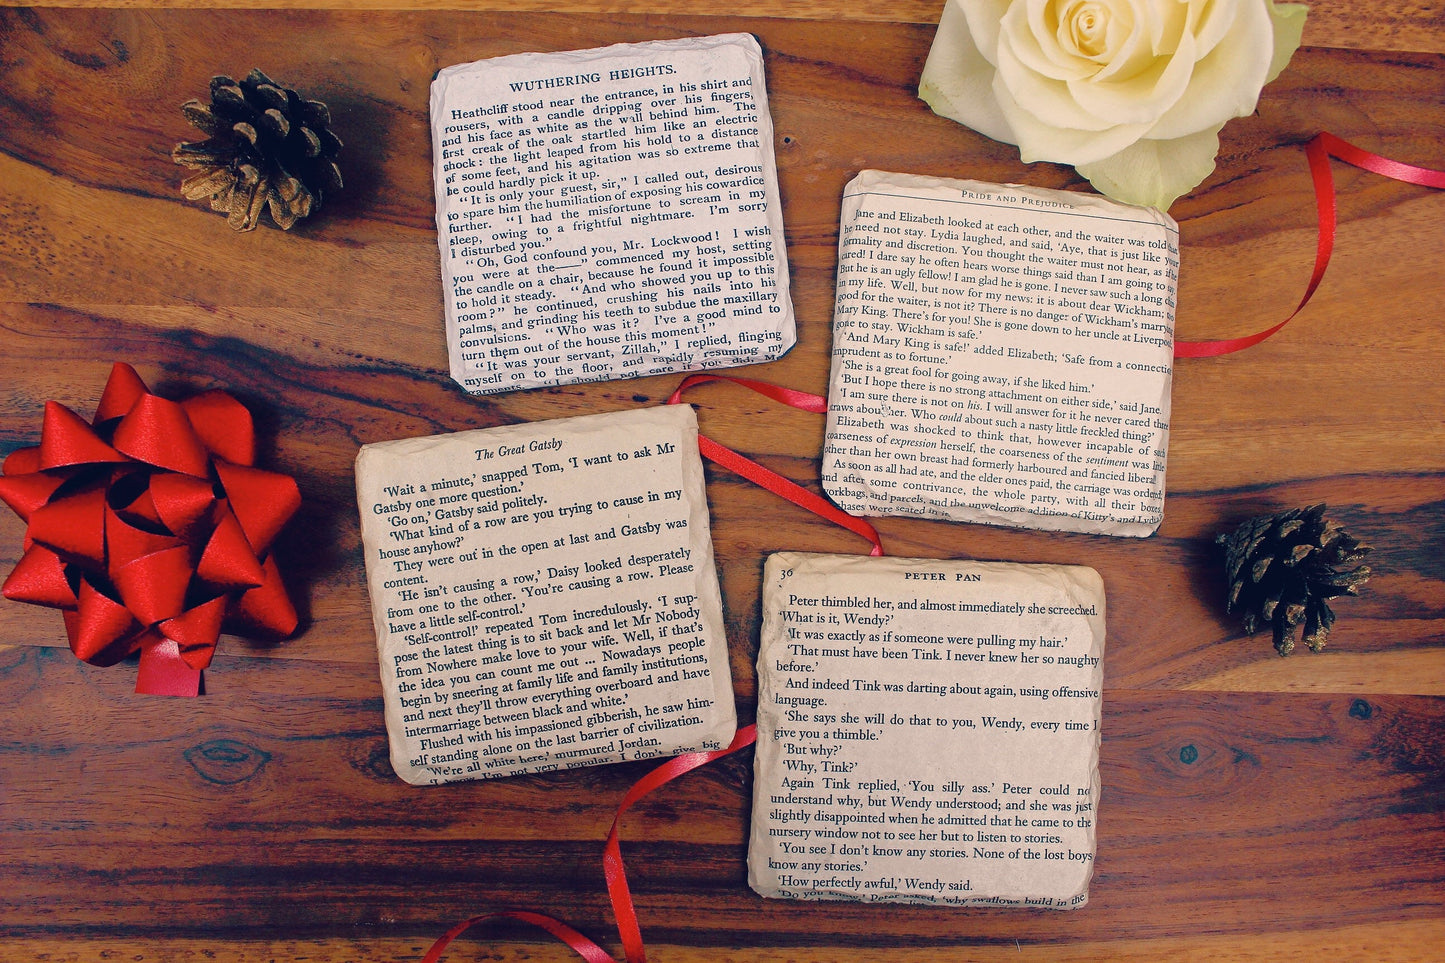 WUTHERING HEIGHTS.
Heathcliff stood near the entrance, in his shirt and
rousers, with a candle dripping over his fingers,
and his face as white as the wall behind him. The
first creak of the oak startled him like an electric
shock: the light leaped from his hold to a distance
of some feet, and his agitation was so extreme that
he could hardly pick it up.
“It is only your guest, sir,” I called out, desirous
to spare him the humiliation of exposing his cowardice
further. “I had the misfortune to scream in my
sleep, owing to a frightful nightmare. I’m sorry
I disturbed you.”
“Oh, God confound you, Mr. Lockwood! I wish
you were at the——” commenced my host, setting
the candle on a chair, because he found it impossible
to hold it steady. “And who showed you up to this
room?” he continued, crushing his nails into his
palms, and grinding his teeth to subdue the maxillary
convulsions. “Who was it? I’ve a good mind to
turn them out of the house this moment!”
“It was your servant, Zillah,” I replied, flinging
myself on to the floor, and rapidly resuming my
garments. “I should not care if you did, M
PRIDE AND PREJUDICE
Jane and Elizabeth looked at each other, and the waiter was told
he need not stay. Lydia laughed, and said, ‘Aye, that is just like your
formality and discretion. You thought the waiter must not hear, as if he
cared! I dare say he often hears worse things said than I am going to say.
But he is an ugly fellow! I am glad he is gone. I never saw such a long
in my life. Well, but now for my news: it is about dear Wickham;
good for the waiter, is not it? There is no danger of Wickham’s marrying
Mary King. There’s for you! She is gone down to her uncle at Liverpool
gone to stay. Wickham is safe.’
‘And Mary King is safe!’ added Elizabeth; ‘Safe from a connection
imprudent as to fortune.’
‘She is a great fool for going away, if she liked him.’
‘But I hope there is no strong attachment on either side,’ said Jane.
‘I am sure there is not on his. I will answer for it he never cared three
straws about her. Who could about such a nasty little freckled thing?’
Elizabeth was shocked to think that, however incapable of such
coarseness of expression herself, the coarseness of the sentiment was little
other than her own breast had formerly harboured and fancied liberal
As soon as all had ate, and the elder ones paid, the carriage was ordered;
and after some contrivance, the whole party, with all their boxes,
workbags, and parcels, and the unwelcome addition of Kitty’s and Lydia
chases were seated in it.
The Great Gatsby
‘Wait a minute,’ snapped Tom, ‘I want to ask Mr
Gatsby one more question.’
‘Go on,’ Gatsby said politely.
‘What kind of a row are you trying to cause in my
house anyhow?’
They were out in the open at last and Gatsby was
content.
‘He isn’t causing a row,’ Daisy looked desperately
from one to the other. ‘You’re causing a row. Please
have a little self-control.’
‘Self-control!’ repeated Tom incredulously. ‘I sup-
pose the latest thing is to sit back and let Mr Nobody
from Nowhere make love to your wife. Well, if that’s
the idea you can count me out ... Nowadays people
begin by sneering at family life and family institutions,
and next they’ll throw everything overboard and have
intermarriage between black and white.’
Flushed with his impassioned gibberish, he saw him-
self standing alone on the last barrier of civilization.
‘We’re all white here,’ murmured Jordan.
‘I know I’m not very popular. I don’t give big
36 PETER PAN
Peter thimbled her, and almost immediately she screeched.
‘What is it, Wendy?’
‘It was exactly as if someone were pulling my hair.’
‘That must have been Tink. I never knew her so naughty
before.’
And indeed Tink was darting about again, using offensive
language.
‘She says she will do that to you, Wendy, every time I
give you a thimble.’
‘But why?’
‘Why, Tink?’
Again Tink replied, ‘You silly ass.’ Peter could no
understand why, but Wendy understood; and she was just
slightly disappointed when he admitted that he came to the
nursery window not to see her but to listen to stories.
‘You see I don’t know any stories. None of the lost boys
know any stories.’
‘How perfectly awful,’ Wendy said.
‘Do you know,’ Peter asked, ‘why swallows build in the